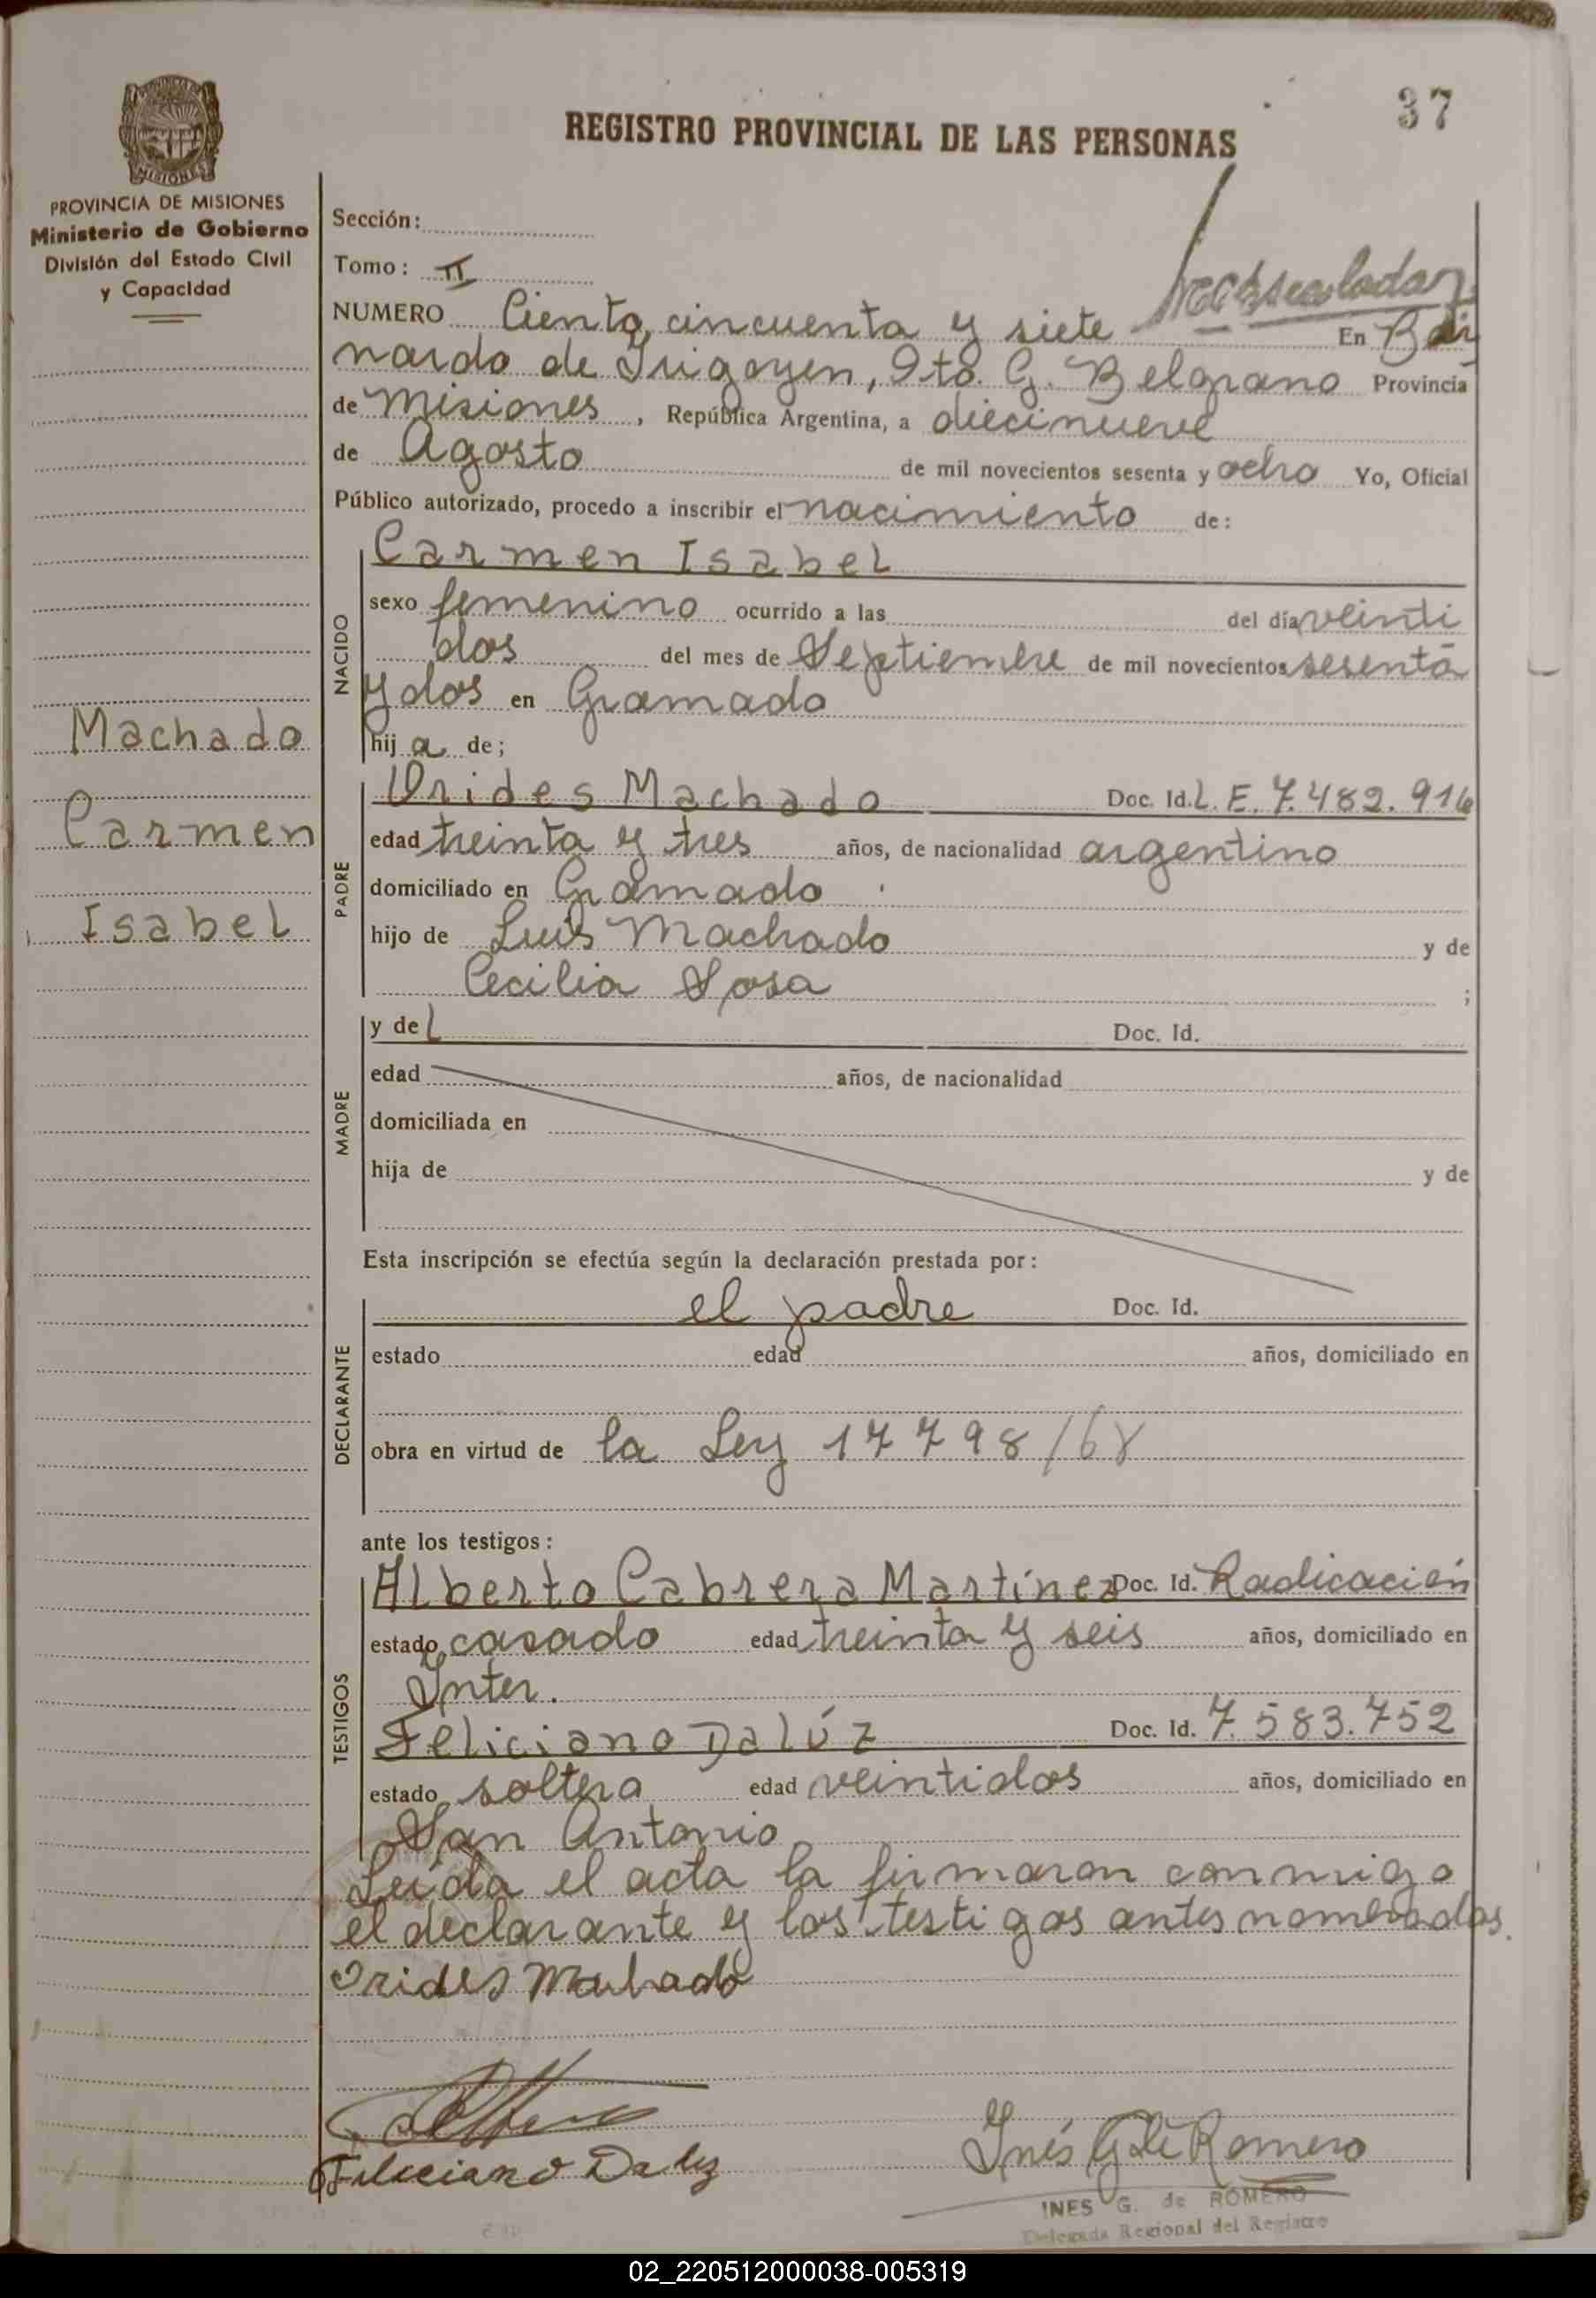 37
REGISTRO PROVINCIAL DE LAS PERSONAS
MISIONES
PROVINCIA DE MISIONES
Ministerio de Gobierno
División del Estado Civil
y Capacidad
Machado
Carmen
Isabel
Sección:
Tomo: II
NUMERO Ciento cincuenta y siete En Ber
nardo de Irigoyen, Dto. G. Belgrano Provincia
de Misiones, República Argentina, a diecinueve
de Agosto de mil novecientos sesenta y ocho Yo, Oficial
Público autorizado, procedo a inscribir el nacimiento de:
NACIDO
Carmen Isabel
sexo femenino ocurrido a las del día veinti
dos del mes de Septiembre de mil novecientos sesenta
y dos en Gramado
hij a de;
PADRE
Orides Machado Doc. Id. L.E. 7.482.916
edad treinta y tres años, de nacionalidad argentino
domiciliado en Gramado
hijo de Luis Machado y de
Cecilia Sosa ;
MADRE
y de Doc. Id.
edad años, de nacionalidad
domiciliada en
hija de y de
Esta inscripción se efectúa según la declaración prestada por:
DECLARANTE
el padre Doc. Id.
estado edad años, domiciliado en
obra en virtud de la Ley 17798/68
ante los testigos:
TESTIGOS
Alberto Cabrera Martínez Doc. Id. Radicación
estado casado edad treinta y seis años, domiciliado en
Inter.
Feliciano Dalúz Doc. Id. 7.583.752
estado soltero edad veintidos años, domiciliado en
San Antonio
Leída el acta la firmaron conmigo
el declarante y los testigos antes nombrados.
Orides Machado
Feliciano Daluz
Inés G de Romero
INES G. de ROMERO
Delegada Regional del Registro
02_220512000038-005319